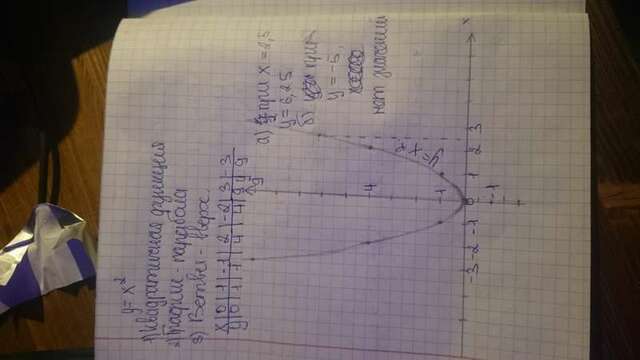 y = x²
1) Квадратичная функция
2) График - парабола
3) Ветви - вверх.
x | 0 | 1 | -1 | 2 | -2 | 3 | -3
y | 0 | 1 | 1 | 4 | 4 | 9 | 9
а) при x = 2,5
y = 6,25
б) при
y = -5,
нет значений
y
4
1
y = x²
-3 -2 -1 0 1 2 3 x
-1